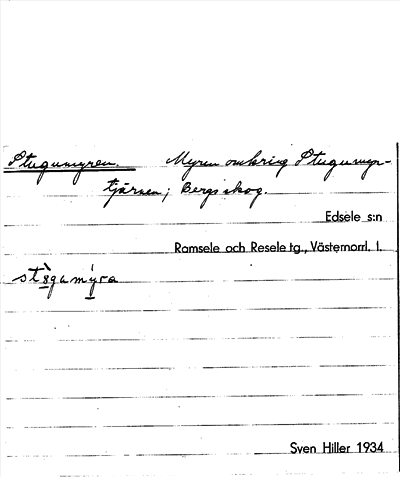 Stugumyren. Myren omkring Stugumyr-
tjärnen; Bergs skog.
Edsele s:n
Ramsele och Resele tg., Västernorrl. l.
stùgamýra
Sven Hiller 1934